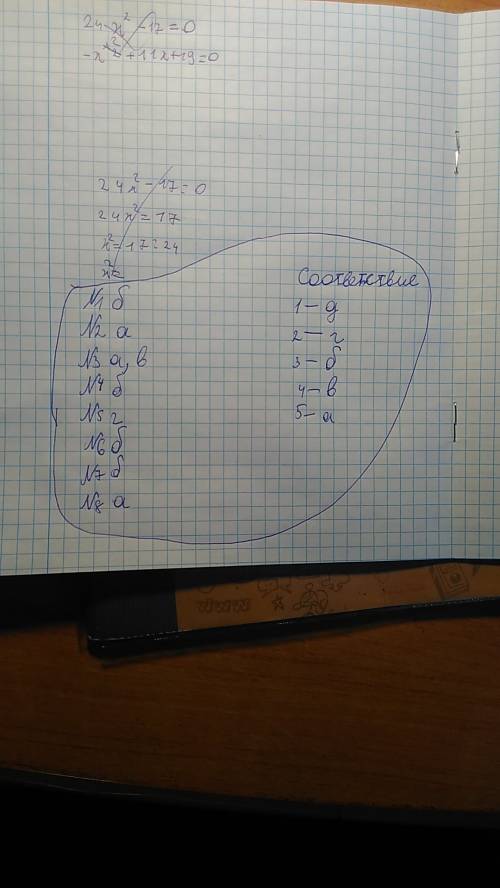 24-x² -17=0
-x² +11x+19=0
24x² - 17=0
24x² = 17
x² = 17:24
x²=
№1 б
№2 а
№3 а, в
№4 б
№5 г
№6 б
№7 б
№8 а
Соответствие
1 — д
2 — г
3 — б
4 — в
5 — а